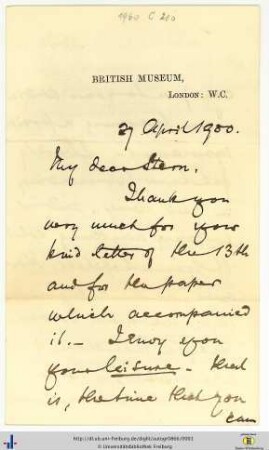 1960 C 210
BRITISH MUSEUM,
LONDON: W.C.
27 April 1900.
My dear Stern,
Thank you
very much for your
kind letter of the 13th
and for the paper
which accompanied
it. — I envy you
your leisure — that
is, the time that you
can
http://dl.ub.uni-freiburg.de/diglit/autogr0866/0001
© Universitätsbibliothek Freiburg